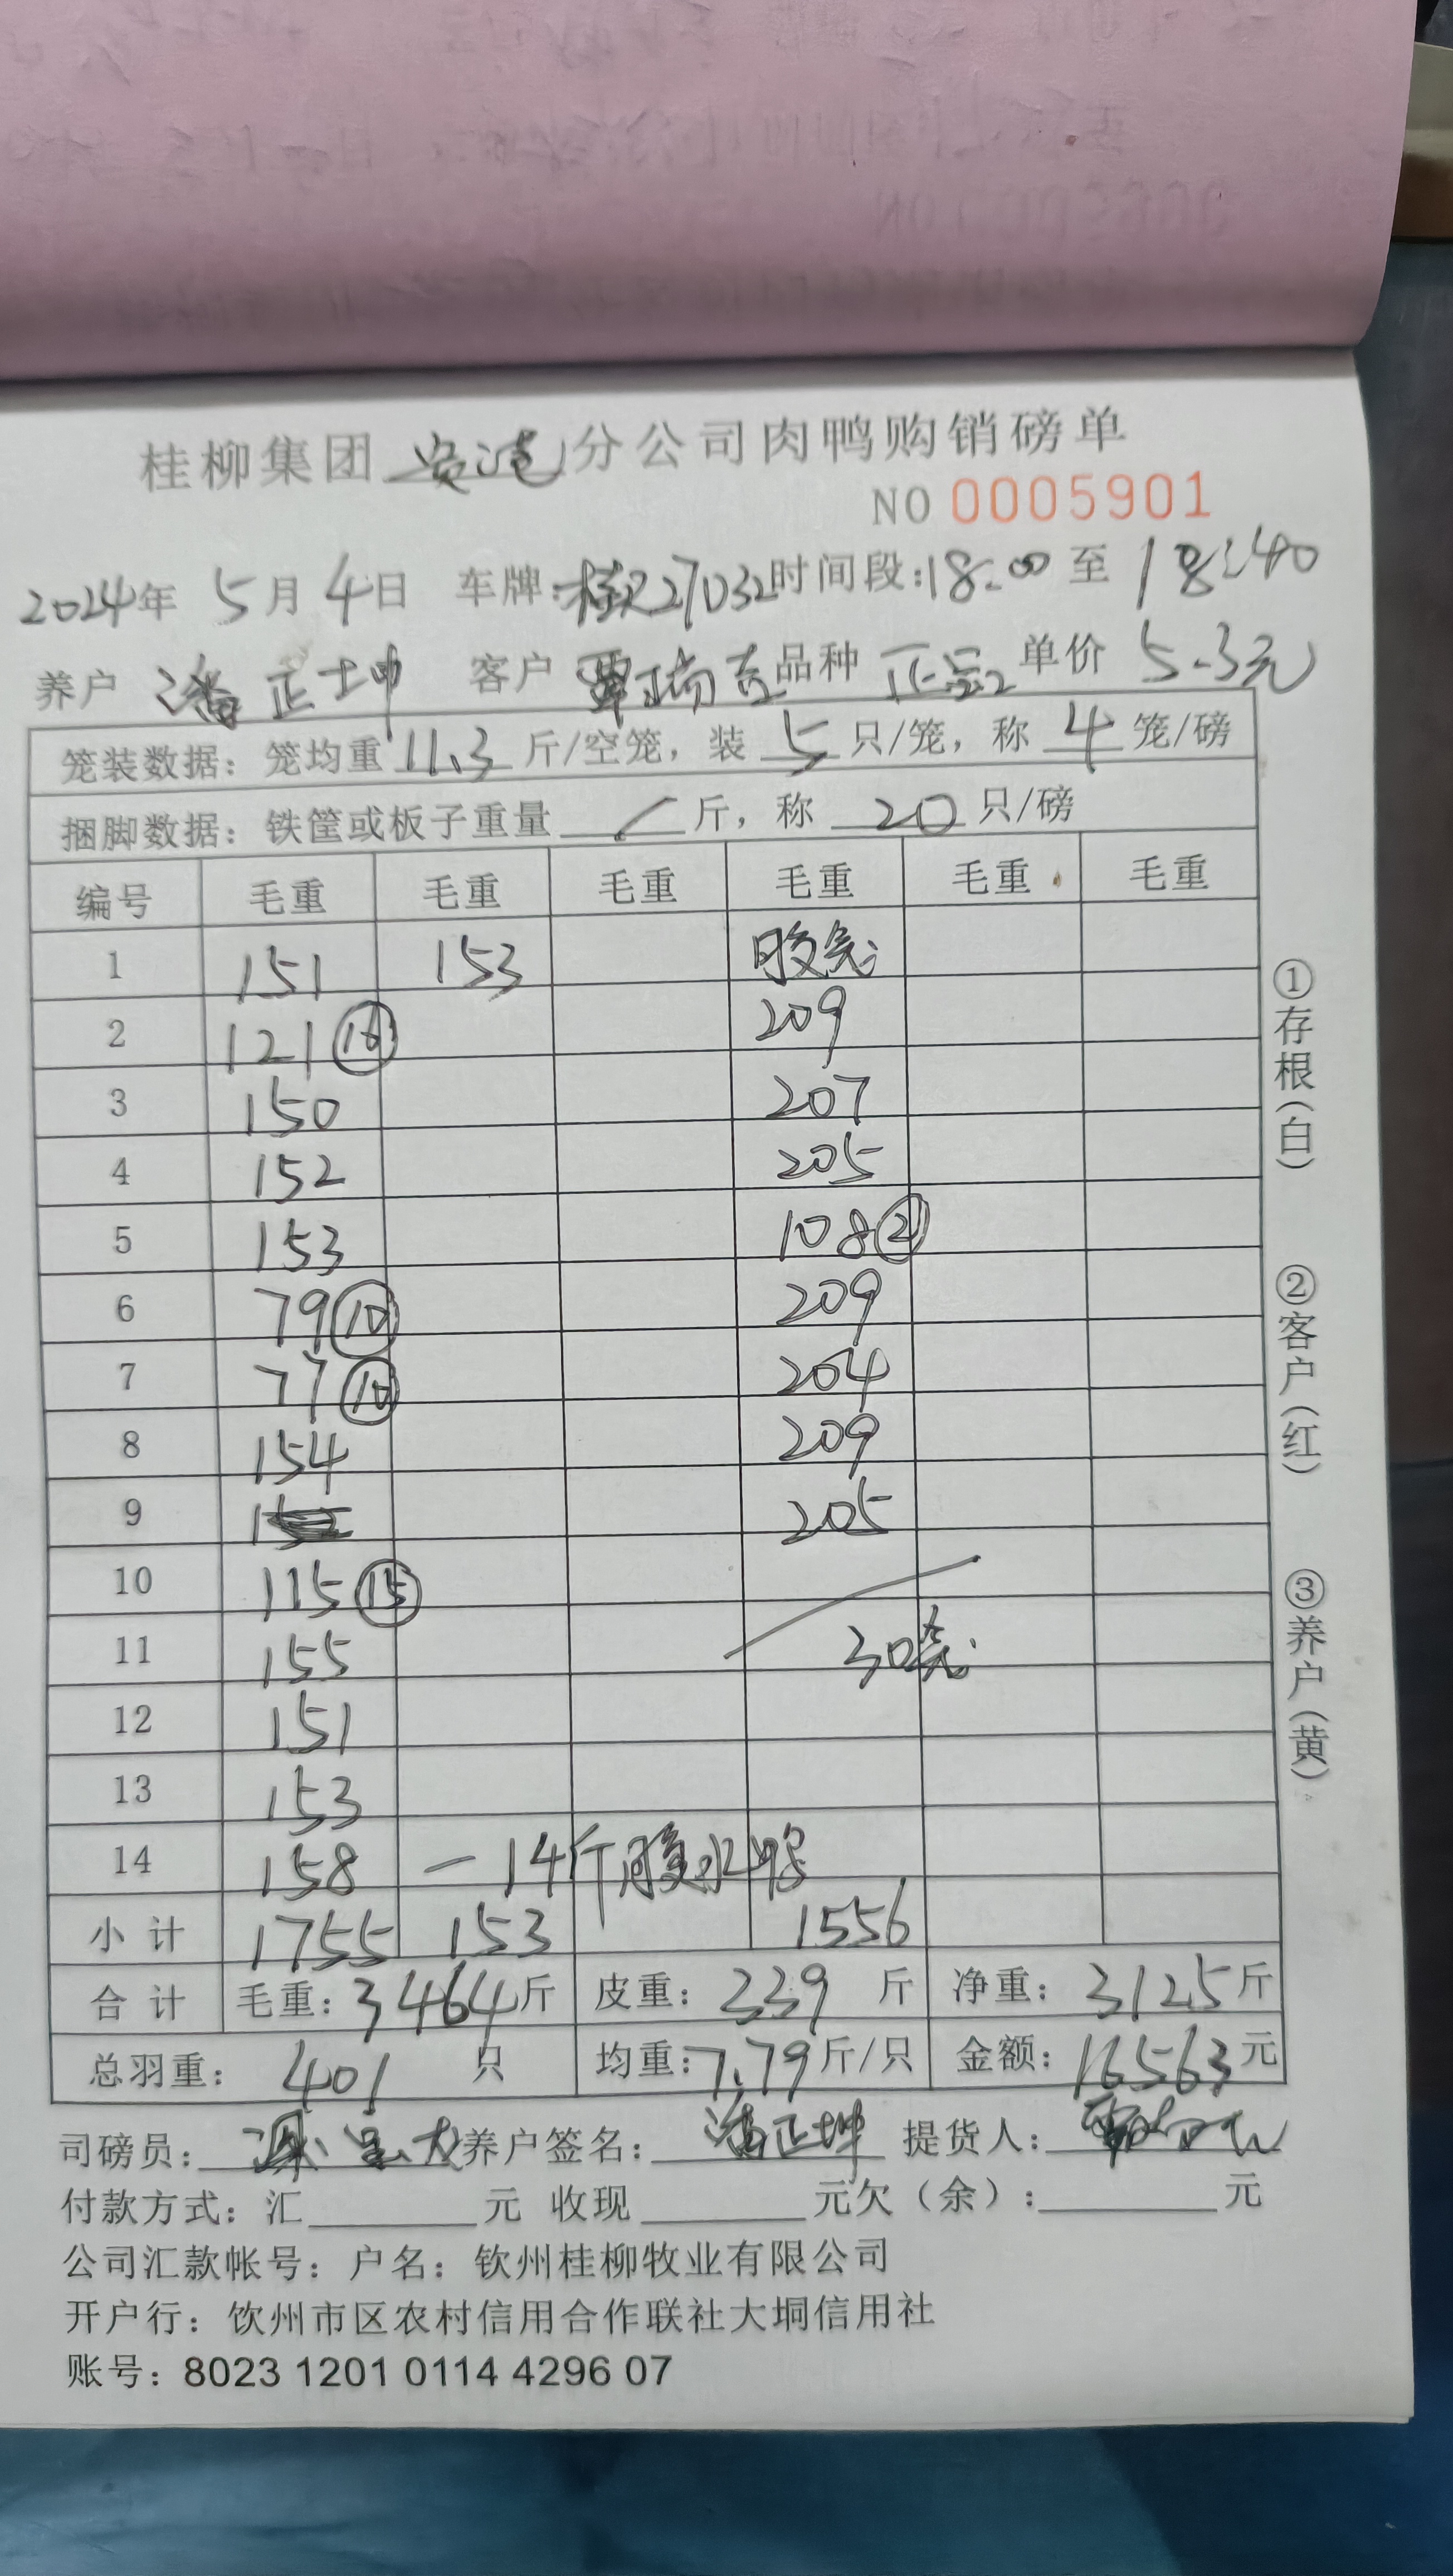 桂柳集团贵港分公司肉鸭购销磅单
NO 0005901
2024年 5月 4日 车牌:桂R27032 时间段:18:00 至 18:40
养户 潘正坤 客户 覃瑞吉 品种 正宗 单价 5.3元
笼装数据: 笼均重 11.3 斤/空笼, 装 5 只/笼, 称 4 笼/磅
捆脚数据: 铁筐或板子重量 / 斤, 称 20 只/磅
编号 毛重 毛重 毛重 毛重 毛重 毛重
1 151 153 胶笼
2 121 ⑯ 209
3 150 207
4 152 205
5 153 108 ②
6 79 ⑩ 209
7 77 ⑩ 204
8 154 209
9 205
10 115 ⑮
11 155 30笼
12 151
13 153
14 158 一14斤胶水鸭
小计 1755 153 1556
合计 毛重: 3464斤 皮重: 339 斤 净重: 3125斤
总羽重: 401 只 均重: 7.79斤/只 金额: 16563元
司磅员: 养户签名: 潘正坤 提货人:
付款方式: 汇 元 收现 元欠(余): 元
公司汇款帐号: 户名: 钦州桂柳牧业有限公司
开户行: 饮州市区农村信用合作联社大垌信用社
账号: 8023 1201 0114 4296 07
①存根(白)
②客户(红)
③养户(黄)